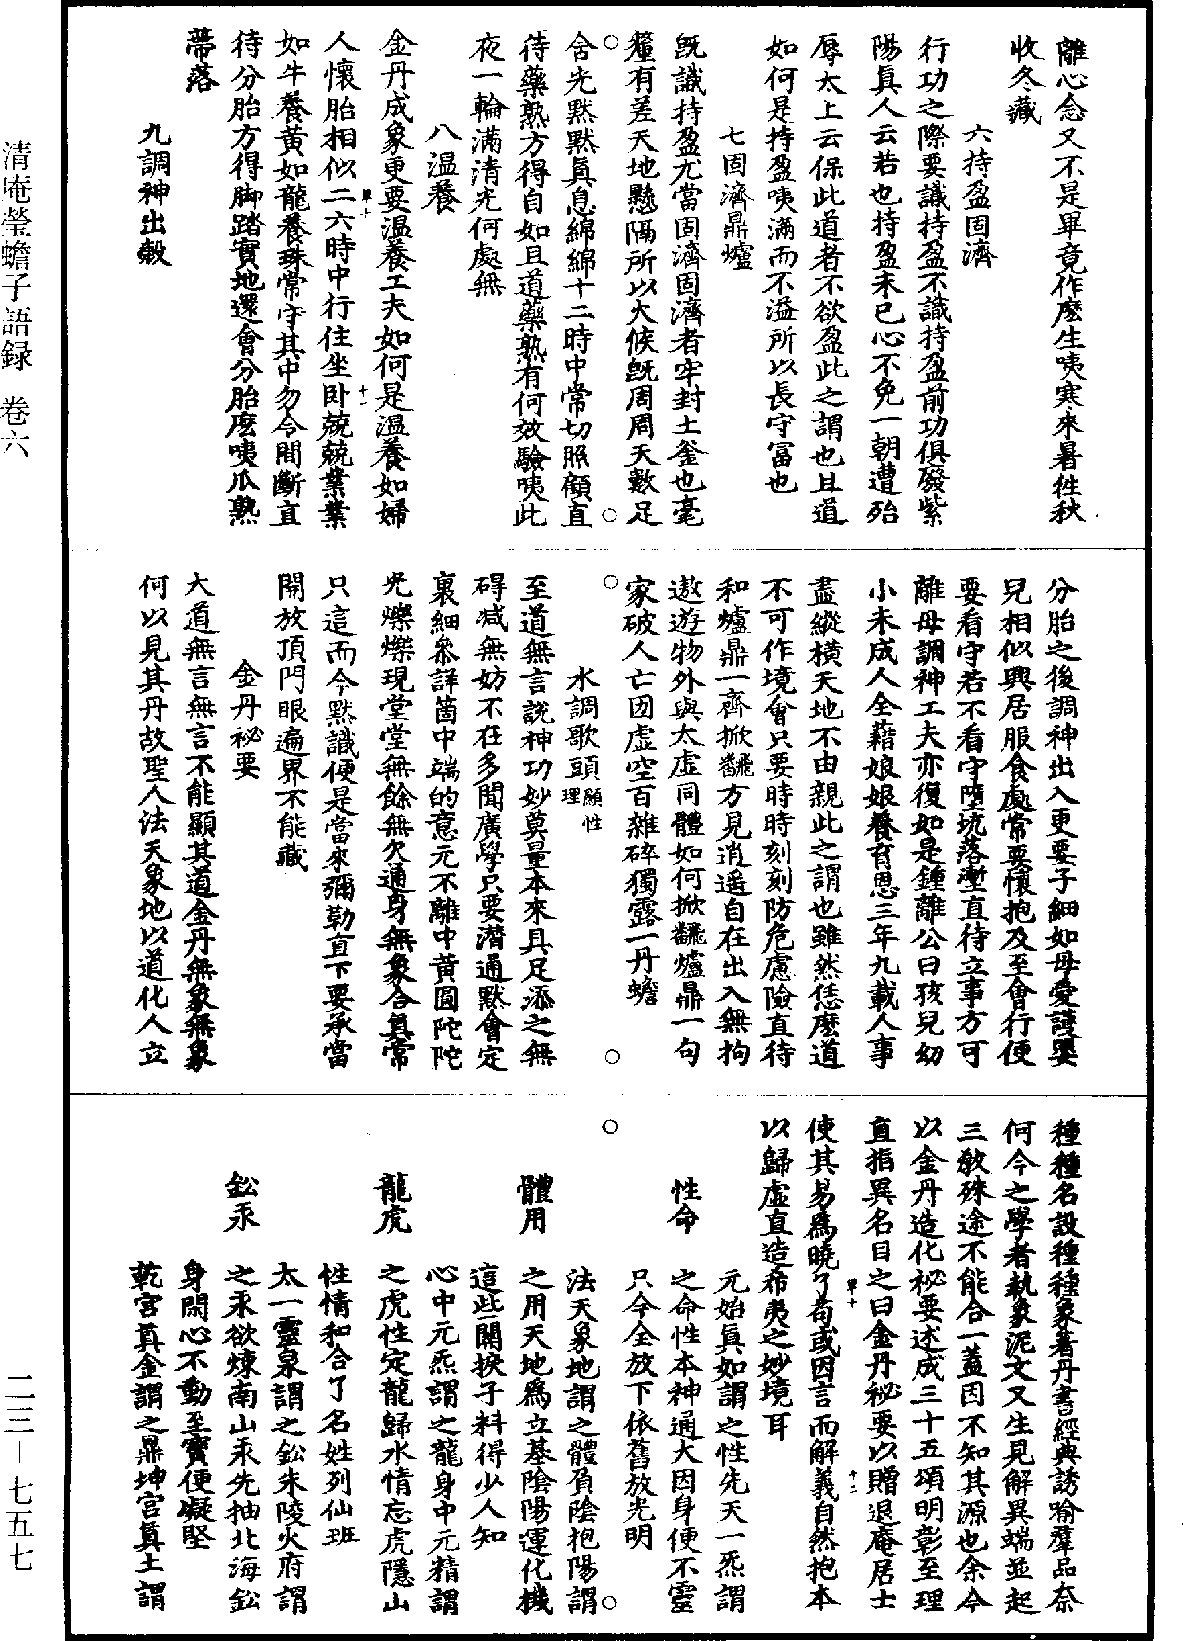 離心念又不是畢竟作麼生咦寒來暑往秋
收冬藏
六持盈固濟
行功之際要識持盈不識持盈前功俱廢紫
陽眞人云若也持盈未已心不免一朝遭殆
辱太上云保此道者不欲盈此之謂也且道
如何是持盈咦滿而不溢所以長守富也
七固濟鼎爐
旣識持盈尤當固濟固濟者牢封土釜也毫
釐有差天地懸隔所以大候旣周周天數足
含光黙黙眞息綿綿十二時中常切照顧直
待藥熟方得自如且道藥熟有何效驗咦此
夜一輪滿清光何處無
八溫養
金丹成象更要溫養工夫如何是溫養如婦
人懷胎相似二六時中行住坐卧兢兢業業
如牛養黃如龍養珠常守其中勿令間斷直
待分胎方得脚踏實地還會分胎麼咦瓜熟
蒂落
九調神出殼
分胎之後調神出入更要子細如母愛護嬰
兒相似興居服食處常要懷抱及至會行便
要看守若不看守墮坑落塹直待立事方可
離母調神工夫亦復如是鍾離公曰孩兒幼
小未成人全藉娘娘養育恩三年九載人事
盡縱橫天地不由親此之謂也雖然恁麼道
不可作境會只要時時刻刻防危慮險直待
和爐鼎一齊掀飜方見逍遥自在出入無拘
遨遊物外與太虛同體如何掀飜爐鼎一句
家破人亡囙虛空百雜碎獨露一丹蟾
水調歌頭顯性理
至道無言說神功妙莫量本來具足添之無
碍減無妨不在多聞廣學只要潛通黙會定
裏細叅詳箇中端的意元不離中黃圓陀陀
光爍爍現堂堂無餘無欠通身無象合眞常
只這而今黙識便是當來彌勒直下要承當
開放頂門眼遍界不能藏
金丹祕要
大道無言無言不能顯其道金丹無象無象
何以見其丹故聖人法天象地以道化人立
種種名設種種象著丹書經典誘喻羣品奈
何今之學者執象泥文又生見解異端並起
三敎殊途不能合一蓋因不知其源也余今
以金丹造化祕要述成三十五頌明彰至理
直指異名目之曰金丹祕要以贈退庵居士
使其易爲曉了苟或因言而解義自然抱本
以歸虛直造希夷之妙境耳
性命
元始眞如謂之性先天一炁謂
之命性本神通大因身便不靈
只今全放下依舊放光明
體用
法天象地謂之體負陰抱陽謂
之用天地爲立基陰陽運化機
這些關捩子料得少人知
龍虎
心中元炁謂之龍身中元精謂
之虎性定龍歸水情忘虎隱山
性情和合了名姓列仙班
鈆汞
太一靈泉謂之鈆朱陵火府謂
之汞欲煉南山汞先抽北海鈆
身閑心不動至寶便凝堅
乾宮眞金謂之鼎坤宮眞土謂
清庵瑩蟾子語録 卷六
二三—七五七